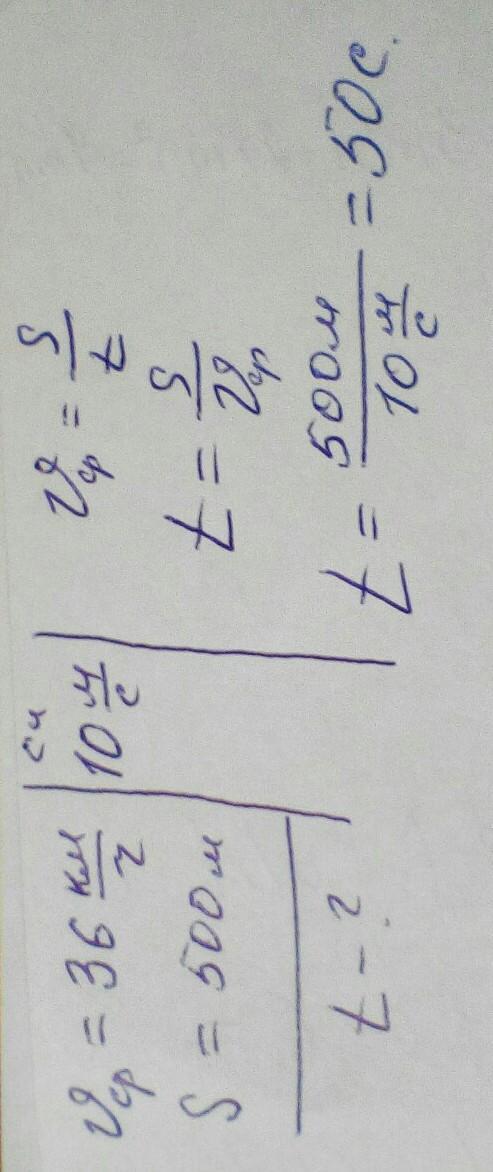 υср = 36 км/ч
S = 500 м
t - ?
си
10 м/с
υср = S/t
t = S/υср
t = 500 м / 10 м/с = 50 с.